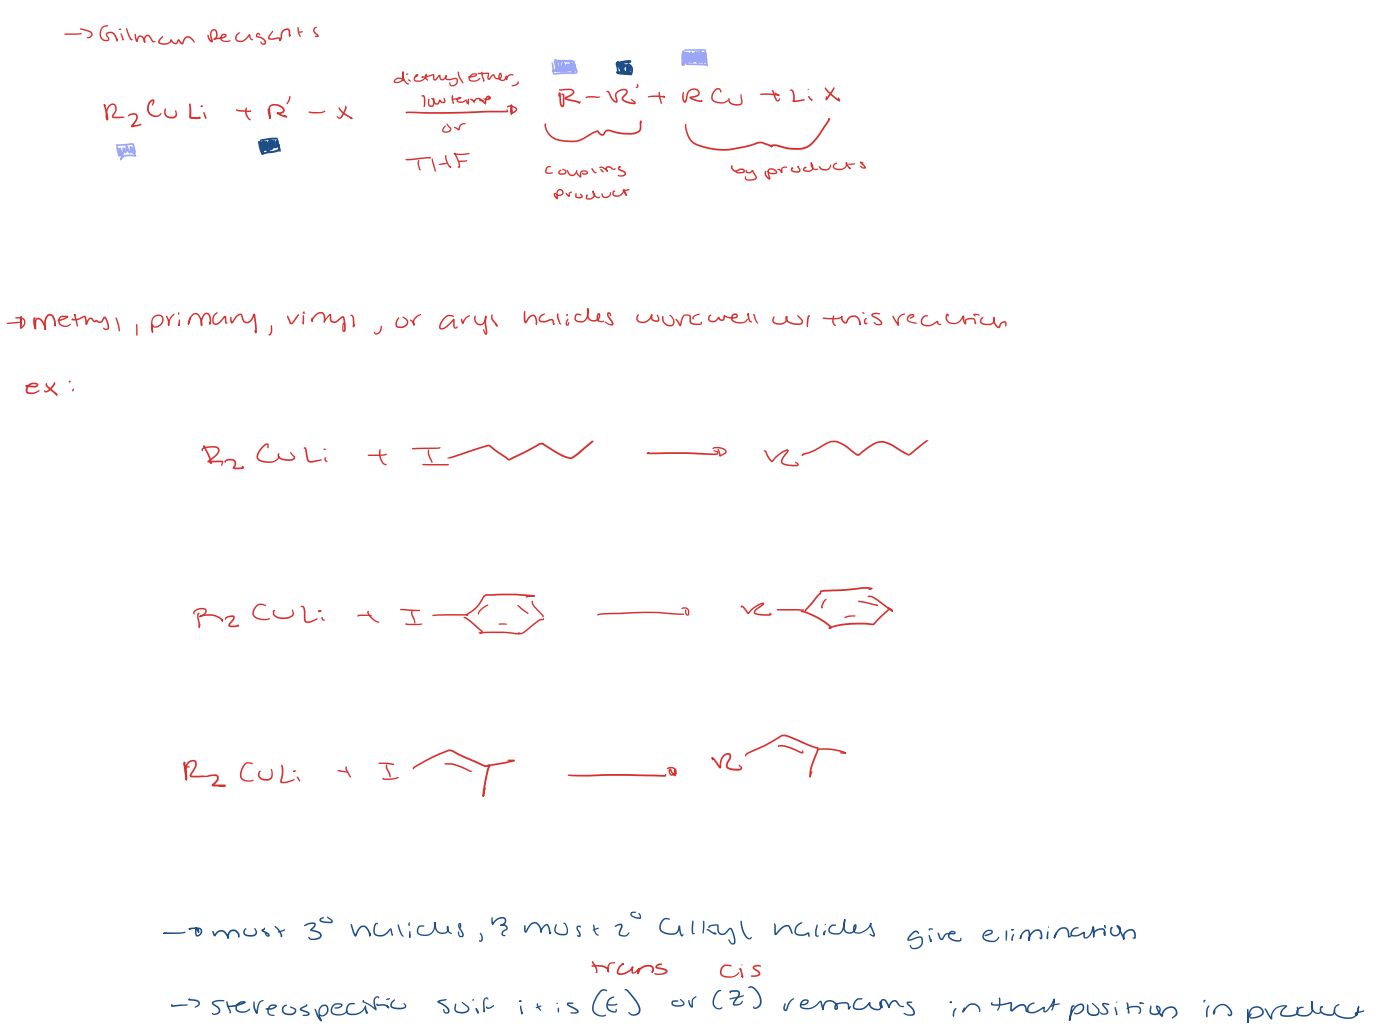 → Gilman Reagents
R₂CuLi + R' – X
diethyl ether,
low temp
or
THF
R – R' + RCu + LiX
coupling
product
byproducts
→ methyl, primary, vinyl, or aryl halides work well w/ this reaction
ex:
R₂CuLi + I → R
R₂CuLi + I → R
R₂CuLi + I → R
→ most 3° halides, & most 2° alkyl halides give elimination
trans cis
→ stereospecific so if it is (E) or (Z) remains in that position in product